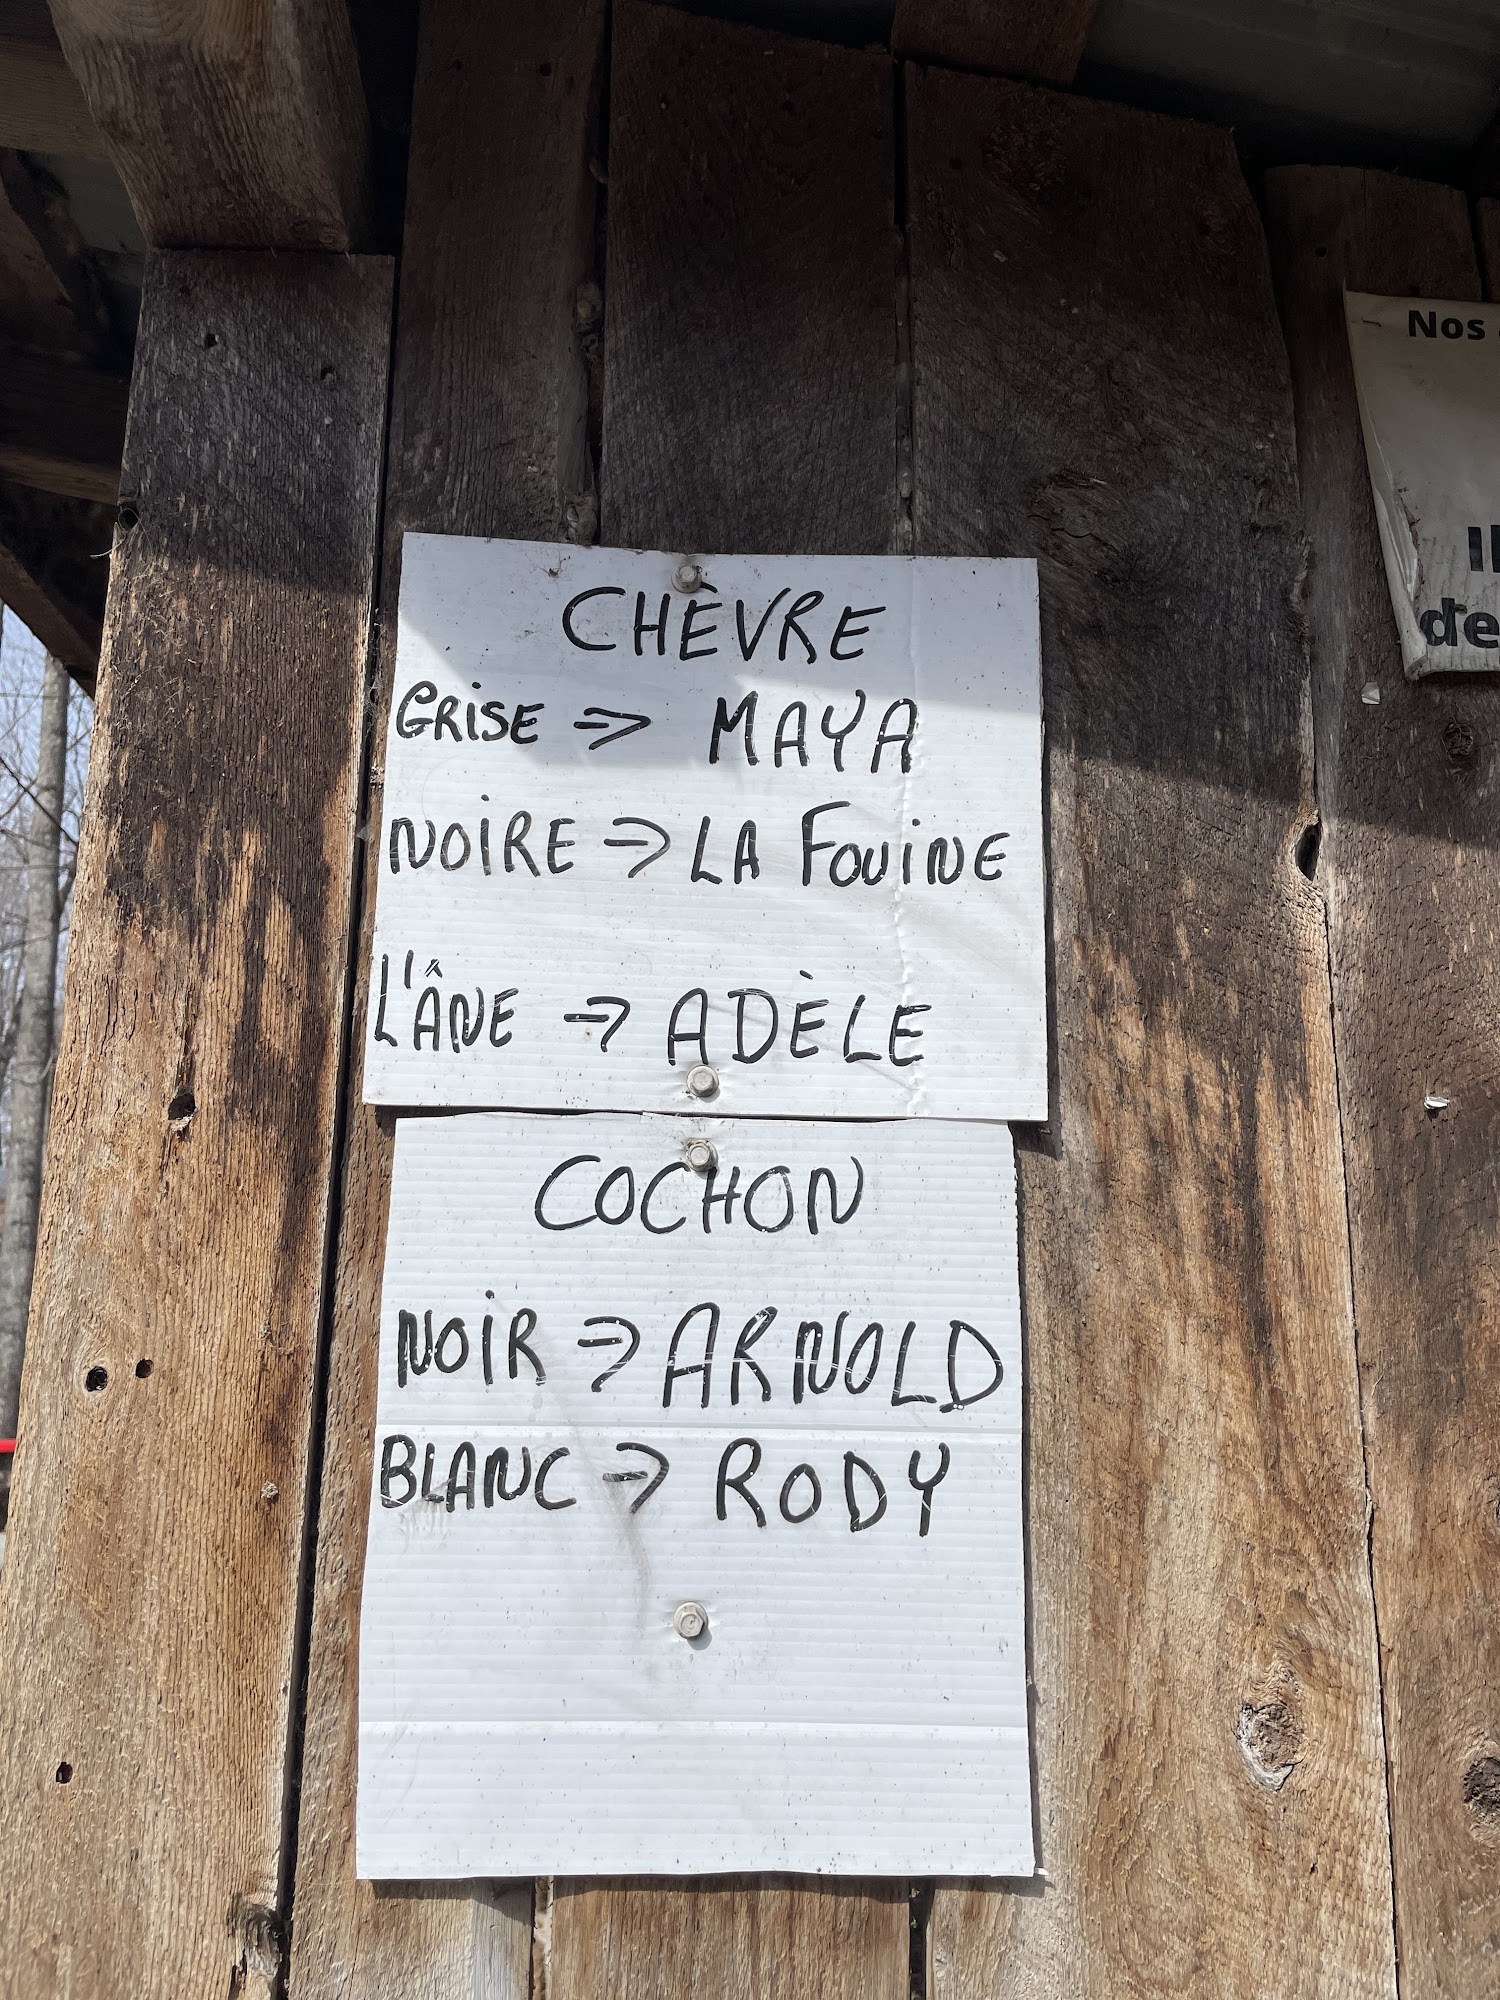 CHÈVRE
GRISE → MAYA
NOIRE → LA FOUINE
L'ÂNE → ADÈLE
COCHON
NOIR → ARNOLD
BLANC → RODY
Nos
de